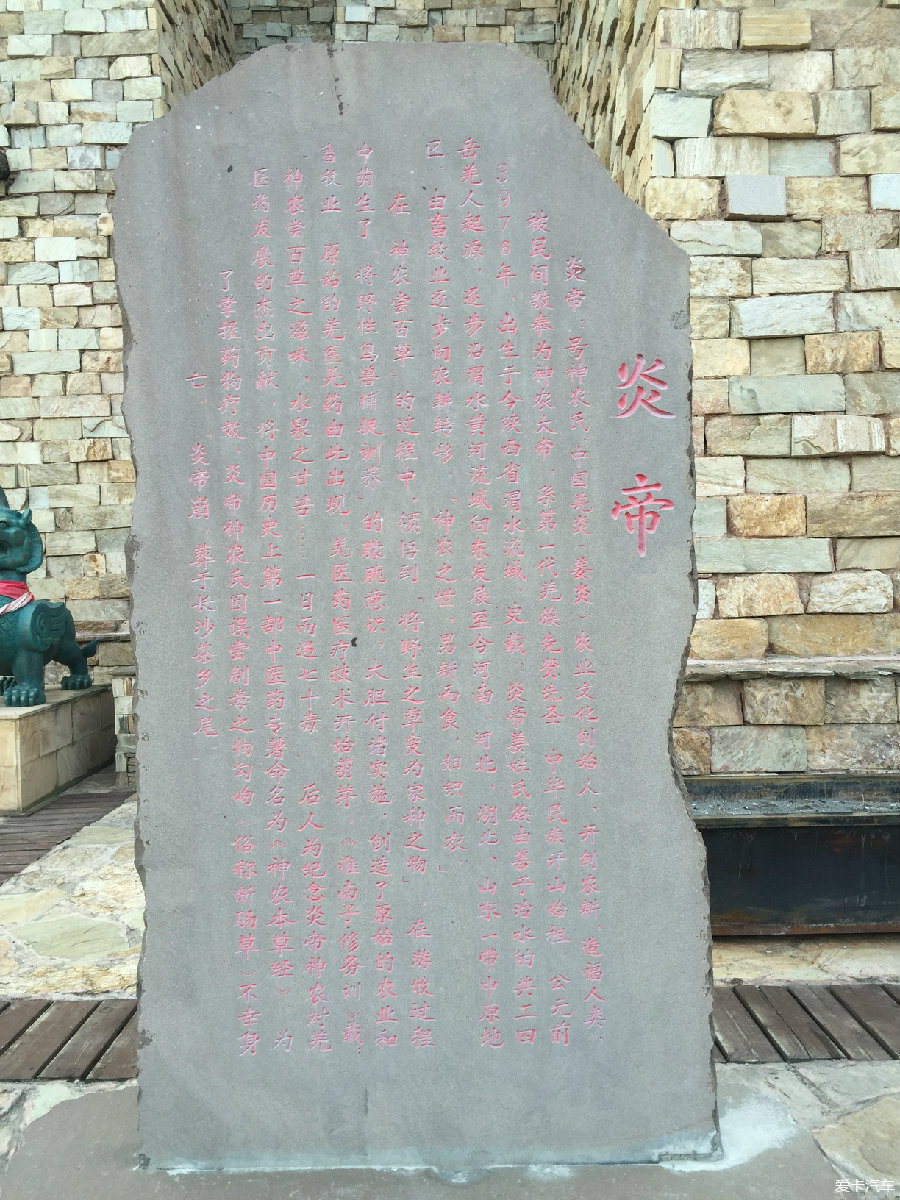 炎帝
炎帝，号神农氏，中国羌炎（姜炎）农业文化创始人，开创农耕，造福人类，
被民间敬奉为神农大帝，系第一代羌族免受先圣，中华民族开山始祖。公元前
3978年，出生于今陕西省渭水流域，史载：炎帝姜姓氏族由善于治水的共工四
岳羌人起源，逐步沿渭水黄河流域向东发展至今河南、河北、湖北、山东一带山原地
区，由畜牧业逐步向农耕转移，“神农之世，男耕而食，妇织而衣。”
在“神农尝百草”的过程中，领悟到“将野生之草变为家种之物”，在游牧过程
中萌生了“将野性鸟兽捕捉训养”的朦胧意识，大胆付诸实施，创造了原始的农业和
畜牧业，原始的羌医羌药由此出现，羌医药医疗技术开始萌芽，《淮南子·修务训》载：
“神农尝百草之滋味，水泉之甘苦……一日而遇七十毒。”后人为纪念炎帝神农对羌
医药发展的杰出贡献，将中国历史上第一部中医药专著命名为《神农本草经》。为
了掌握药物疗效，炎帝神农氏因误尝剧毒之物勾吻（俗称断肠草）不幸身
亡。“炎帝崩，葬于长沙茶乡之尾”
爱卡汽车